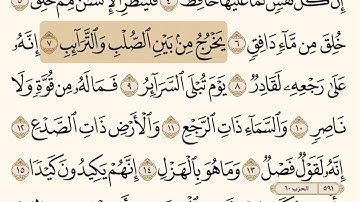 إِن كُلُّ نَفْسٍ لَّمَّا عَلَيْهَا حَافِظٌ ٤ فَلْيَنظُرِ الْإِنسَٰنُ مِمَّ خُلِقَ ٥
خُلِقَ مِن مَّآءٍ دَافِقٍ ٦ يَخْرُجُ مِنۢ بَيْنِ الصُّلْبِ وَالتَّرَآئِبِ ٧ إِنَّهُۥ
عَلَىٰ رَجْعِهِۦ لَقَادِرٌ ٨ يَوْمَ تُبْلَى السَّرَآئِرُ ٩ فَمَا لَهُۥ مِن قُوَّةٍ وَلَا
نَاصِرٍ ١٠ وَالسَّمَآءِ ذَاتِ الرَّجْعِ ١١ وَالْأَرْضِ ذَاتِ الصَّدْعِ ١٢
إِنَّهُۥ لَقَوْلٌ فَصْلٌ ١٣ وَمَا هُوَ بِالْهَزْلِ ١٤ إِنَّهُمْ يَكِيدُونَ كَيْدًا ١٥
٥٩١ الحزب ٦٠